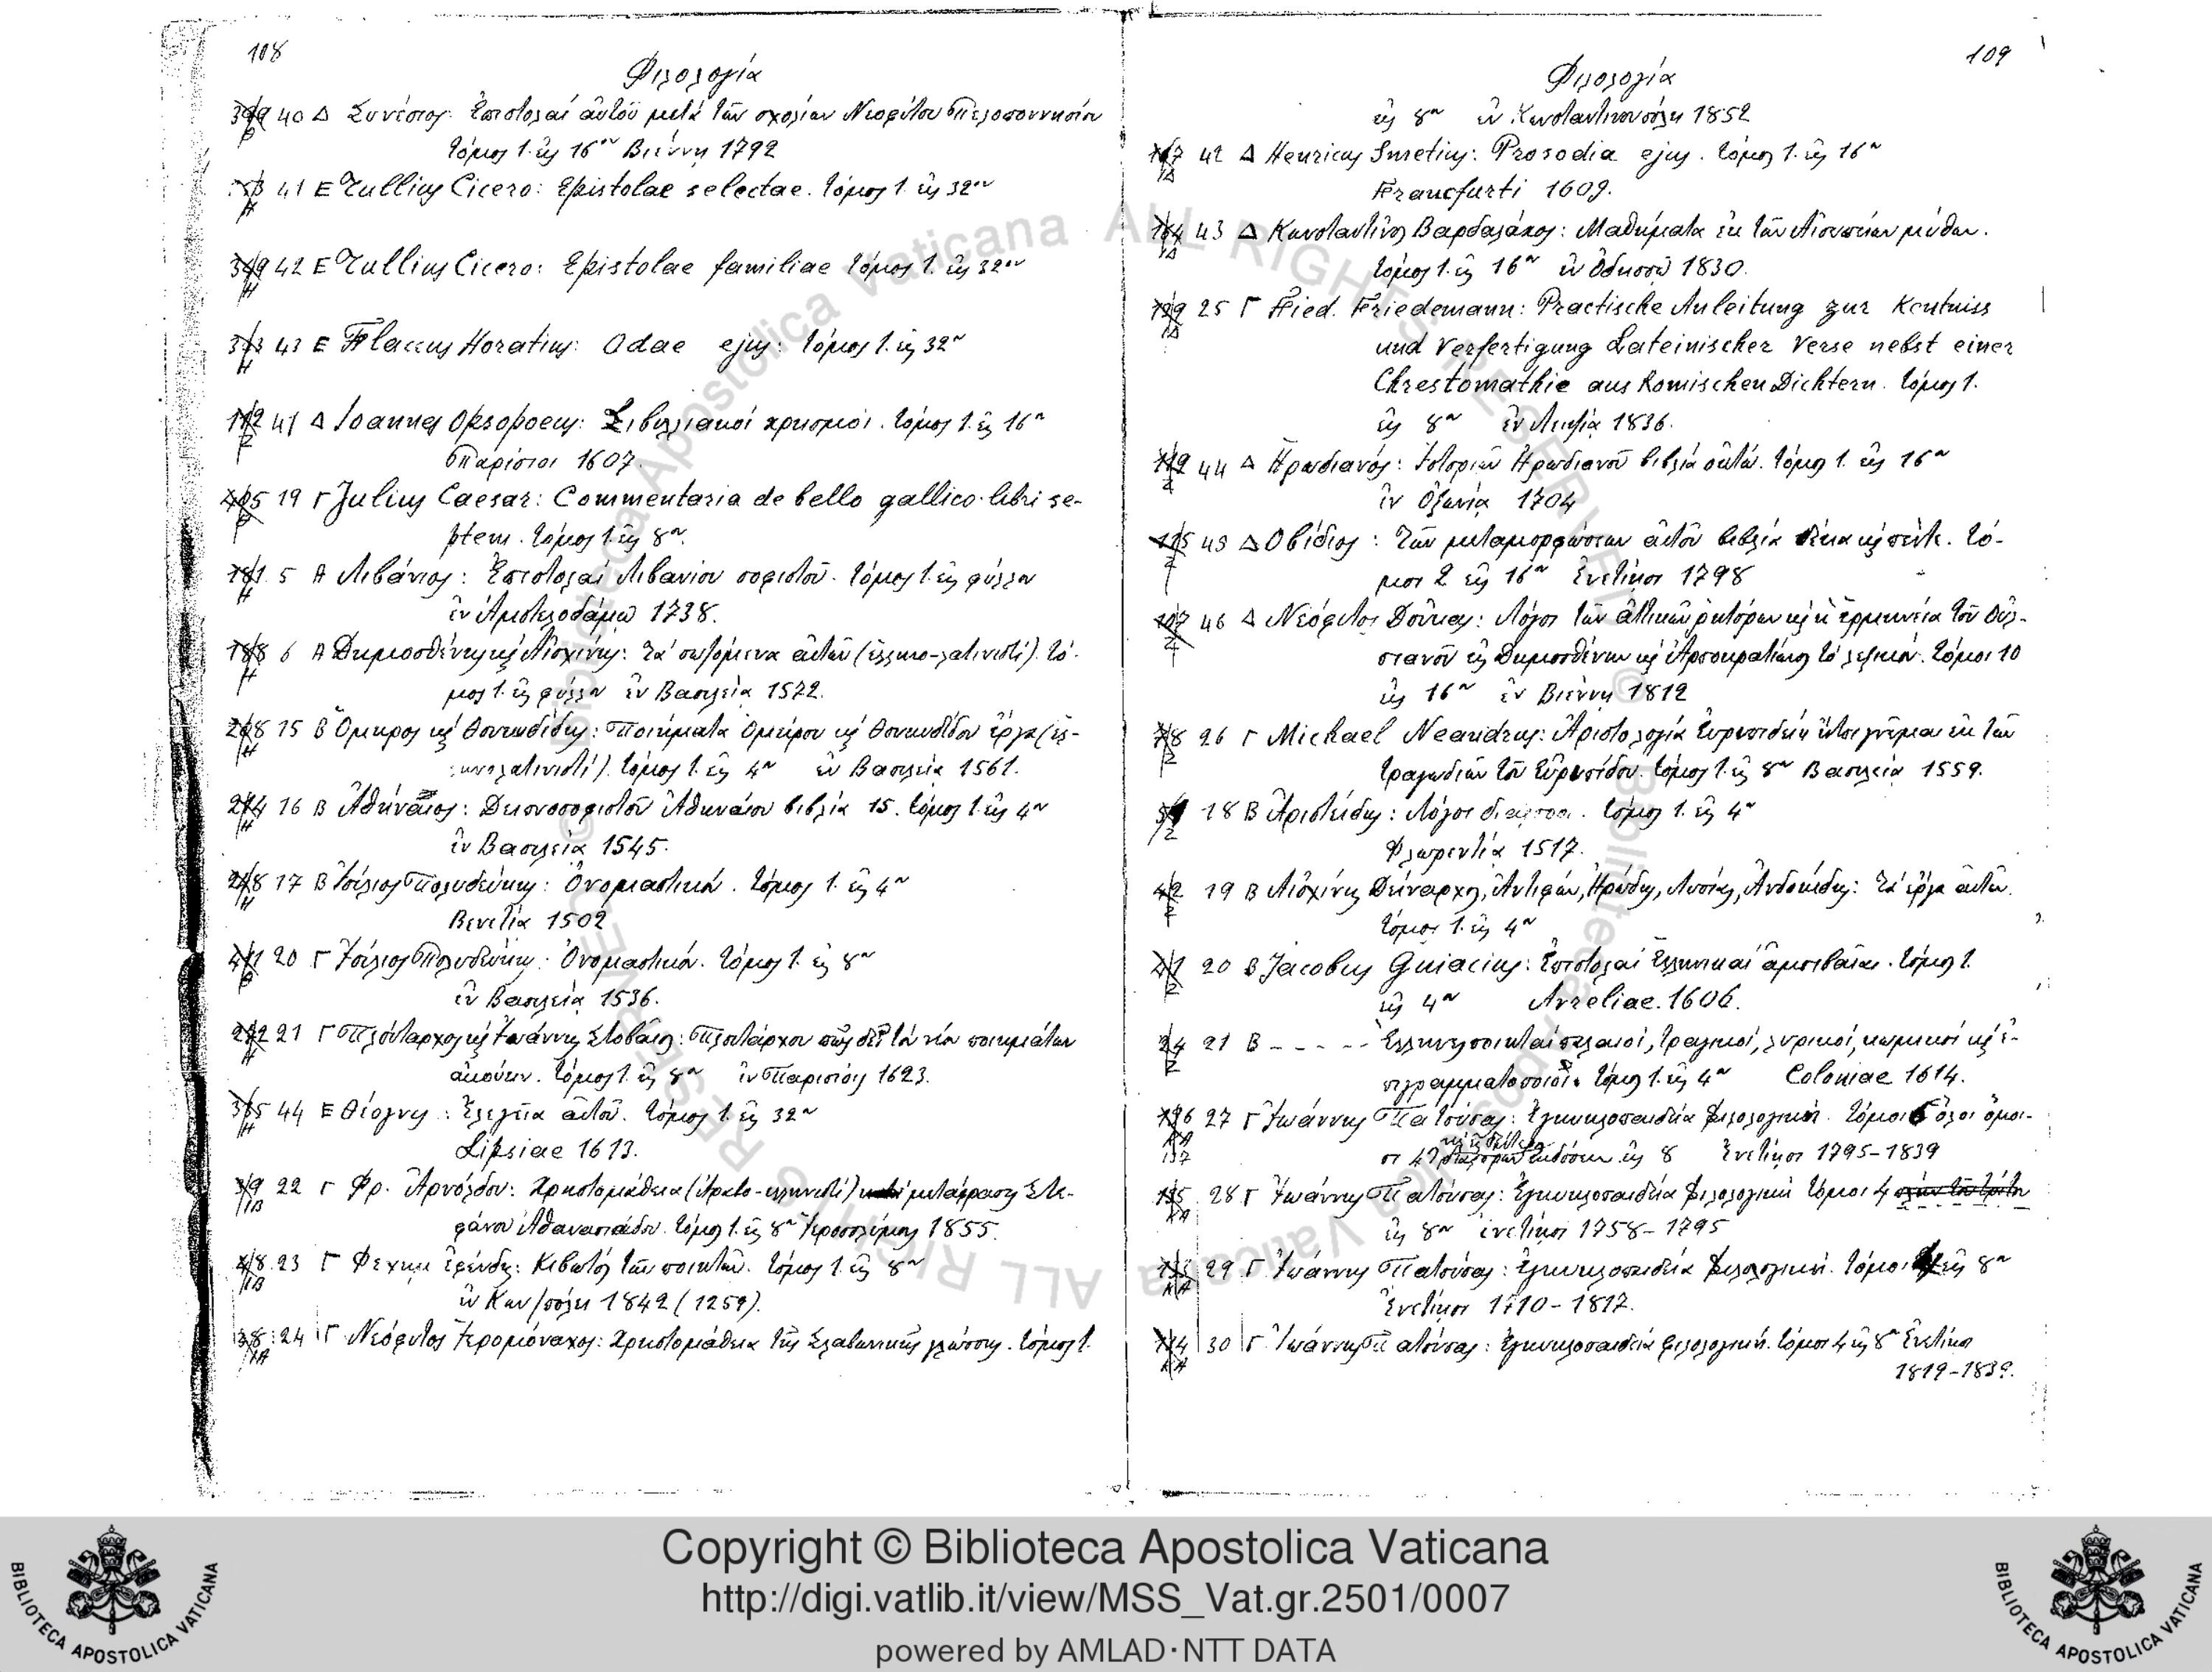 108
Φιλολογία
399 40 Δ Συνέσιος: Ἐπιστολαί αὐτοῦ μετά τῶν σχολίων Νεοφύτου Πελοποννησίου
τόμος 1. εἰς 16ον Βιέννη 1792
41 Ε Tullius Cicero: Epistolae selectae. τόμος 1. εἰς 32ον
349 42 Ε Tullius Cicero: Epistolae familiae τόμος 1. εἰς 32ον
43 Ε Flaccus Horatius: Odae ejus: τόμος 1. εἰς 32ον
112 41 Δ Joannes Opsopoeus: Σιβυλλιακοί χρησμοί. τόμος 1. εἰς 16ον
Παρίσιοι 1607.
405 19 Γ Julius Caesar: Commentaria de bello gallico. libri se-
ptem. τόμος 1. εἰς 8ον.
181 5 Α Λιβάνιος: Ἐπιστολαί Λιβανίου σοφιστοῦ. τόμος 1. εἰς φύλλον
ἐν Ἀμστελοδάμῳ 1738.
188 6 Α Δημοσθένης κ Αἰσχίνης: Τά σωζόμενα αὐτῶν (ἑλληνο-λατινιστί). τό-
μος 1. εἰς φύλλον ἐν Βασιλείᾳ 1572.
208 15 Β Ὅμηρος κ Θουκυδίδης: Ποιήματα Ὁμήρου κ Θουκυδίδου ἔργα (ἑλ-
ληνολατινιστί). τόμος 1. εἰς 4ον ἐν Βασιλείᾳ 1561.
214 16 Β Ἀθήναιος: Δειπνοσοφιστοῦ Ἀθηναίου βιβλία 15. τόμος 1. εἰς 4ον
ἐν Βασιλείᾳ 1545.
218 17 Β Ἰούλιος Πολυδεύκης: Ὀνομαστικόν. τόμος 1. εἰς 4ον
Βενετία 1502
411 20 Γ Ἰούλιος Πολυδεύκης: Ὀνομαστικόν. τόμος 1. εἰς 8ον
ἐν Βασιλείᾳ 1536.
21 Γ Πλούταρχος κ Ἰωάννης Στοβαῖος: Πλουτάρχου πῶς δεῖ τόν νέον ποιημάτων
ἀκούειν. τόμος 1. εἰς 8ον ἐν Παρισίοις 1623.
44 Ε Θέογνις: Ἐλεγεῖα αὐτοῦ. τόμος 1. εἰς 32ον
Lipsiae 1613.
22 Γ Φρ. Ἀρνόλδου: Χρηστομάθεια (ἀραβο-ἑλληνιστί) μετάφρασις Στε-
φάνου Ἀθανασιάδου. τόμος 1. εἰς 8ον Ἱεροσολύμοις 1855.
23 Γ Φεχήμ Ἐφένδης: Κιβωτός τῶν ποιητῶν. τόμος 1. εἰς 8ον
ἐν Κων/πόλει 1842 (1259).
24 Γ Νεόφυτος Ἱερομόναχος: Χρηστομάθεια τῆς Σλαβωνικῆς γλώσσης. τόμος 1.
109
Φιλολογία
εἰς 8ον ἐν Κωνσταντινουπόλει 1852
42 Δ Henricus Smetius: Prosodia ejus. τόμος 1. εἰς 16ον
Francfurti 1609.
43 Δ Κωνσταντῖνος Βαρδαλάχος: Μαθήματα ἐκ τῶν Αἰσωπείων μύθων.
τόμος 1. εἰς 16ον ἐν Ὀδησσῷ 1830.
25 Γ Fried. Friedemann: Practische Anleitung zur Kentniss
und Verfertigung Lateinischer Verse nebst einer
Chrestomathie aus Romischen Dichtern. τόμος 1.
εἰς 8ον ἐν Λειψίᾳ 1836.
119 44 Δ Ἡρωδιανός: Ἱστοριῶν Ἡρωδιανοῦ βιβλία ὀκτώ. τόμος 1. εἰς 16ον
ἐν Ὀξωνίᾳ 1704
115 45 Δ Ὀβίδιος: Τῶν μεταμορφώσεων αὐτοῦ βιβλία δέκα κ πέντε. τό-
μοι 2 εἰς 16ον Ἐνετίῃσι 1798
107 46 Δ Νεόφυτος Δούκας: Λόγοι τῶν ἀττικῶν ῥητόρων κ ἡ ἑρμηνεία τοῦ Οὐλ-
πιανοῦ εἰς Δημοσθένην κ Ἁρποκρατίωνος τό λεξικόν. τόμοι 10
εἰς 16ον ἐν Βιέννῃ 1812
78 26 Γ Michael Neandrus: Ἀριστολογία Εὐριπιδείη ἤτοι γνῶμαι ἐκ τῶν
τραγωδιῶν τοῦ Εὐριπίδου. τόμος 1. εἰς 8ον Βασιλείᾳ 1559.
18 Β Ἀριστείδης: Λόγοι διάφοροι. τόμος 1. εἰς 4ον
Φλωρεντία 1517.
42 19 Β Αἰσχίνης, Δείναρχος, Ἀντιφῶν, Ἡρώδης, Λυσίας, Ἀνδοκίδης: Τά ἔργα αὐτῶν.
τόμος 1. εἰς 4ον
20 Β Jacobus Guiacius: Ἐπιστολαί Ἑλληνικαί ἀμοιβαῖαι. τόμος 1.
εἰς 4ον Avreliae. 1606.
24 21 Β - - - - Ἕλληνες ποιηταί παλαιοί, τραγικοί, λυρικοί, κωμικοί κ ἐ-
πιγραμματοποιοί. τόμος 1. εἰς 4ον Coloniae 1614.
27 Γ Ἰωάννης Πατούσας: Ἐγκυκλοπαιδεία φιλολογική. τόμοι 6 ὅλοι ὅμοι-
οι ἐκδόσεων εἰς 8 Ἐνετίῃσι 1795-1839
28 Γ Ἰωάννης Πατούσας: Ἐγκυκλοπαιδεία φιλολογική τόμοι 4 πλήν τοῦ τρίτου
εἰς 8ον ἐνετίῃσι 1758-1795
29 Γ Ἰωάννης Πατούσας: Ἐγκυκλοπαιδεία φιλολογική. τόμοι εἰς 8ον
Ἐνετίῃσι 1710-1817.
30 Γ Ἰωάννης Πατούσας: Ἐγκυκλοπαιδεία φιλολογική. τόμοι 4 εἰς 8ον Ἐνετίῃσι
1819-1839.
Copyright © Biblioteca Apostolica Vaticana
http://digi.vatlib.it/view/MSS_Vat.gr.2501/0007
powered by AMLAD·NTT DATA
BIBLIOTECA APOSTOLICA VATICANA
BIBLIOTECA APOSTOLICA VATICANA